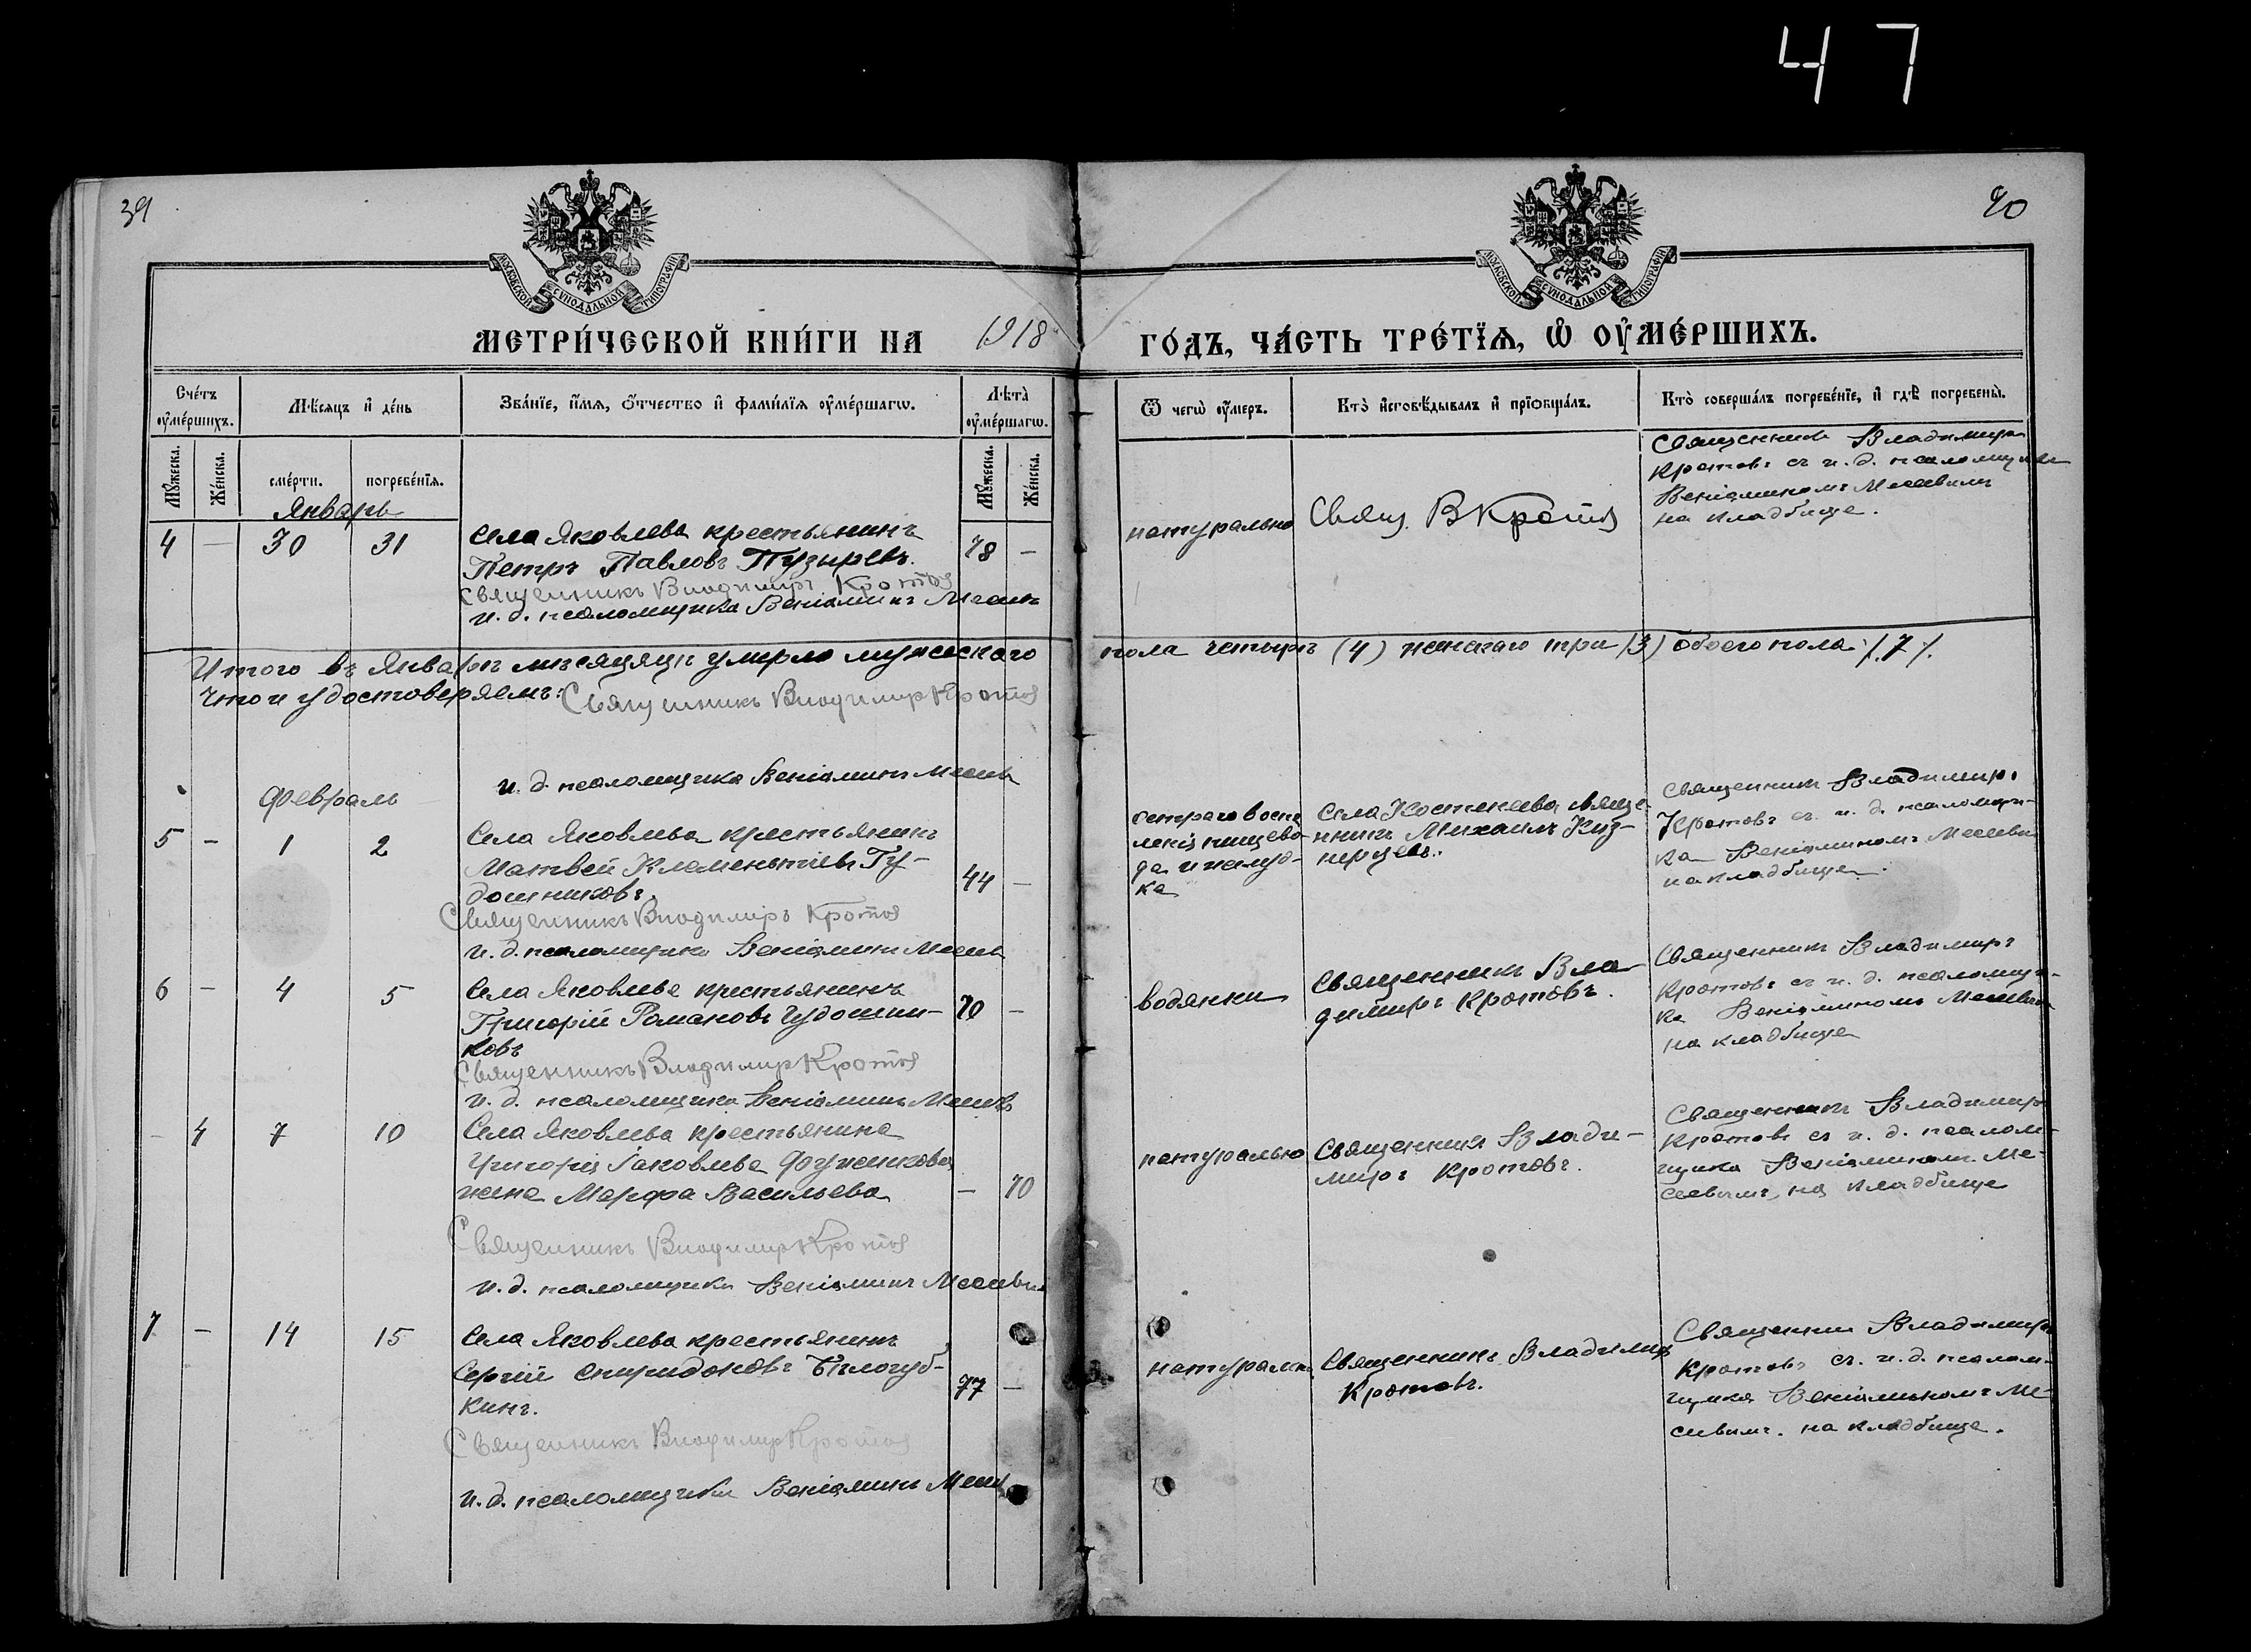 47
39
40
МОСКОВСКОЙ СѴНОДАЛЬНОЙ ТИПОГРАФІИ
МОСКОВСКОЙ СѴНОДАЛЬНОЙ ТИПОГРАФІИ
МЕТРИ́ЧЕСКОЙ КНИ́ГИ НА 1918 ГО́ДЪ, ЧА́СТЬ ТРЕ́ТІѦ, Ѽ ОУ҆МЕ́РШИХЪ.
Сче́тъ оу҆ме́ршихъ.
Мѣ́сяцъ и҆ де́нь
Зва́нїе, и҆́мѧ, ѻ҆́тчество и҆ фами́лїѧ оу҆ме́ршагѡ.
Лѣ̀та оу҆ме́ршагѡ.
Ѿ чегѡ̀ оу҆́меръ.
Кто̀ и҆сповѣ́дывалъ и҆ прїѡбща́лъ.
Кто̀ соверша́лъ погребе́нїе, и҆ гдѣ̀ погребены̀.
Му́жеска.
Же́нска.
сме́рти.
погребе́нїѧ.
Му́жеска.
Же́нска.
Январь
4 — 30 31
Села Яковлева крестьянинъ
Петръ Павловъ Пузыревъ.
78 —
Священникъ Владимиръ Кротов
и. д. псаломщика Веніаминъ
натурально
Свящ. В Кротов
Священникъ Владимиръ
Кротовъ съ и. д. псаломщика
Веніаминомъ Месевымъ
на кладбище.
Итого въ Январѣ мѣсяцѣ умерло мужескаго
пола четыре (4) женскаго три (3) обоего пола /.7/.
Что и удостоверяемъ: Священникъ Владимир Кротов
и. д. псаломщика Веніаминъ
Февраль
5 — 1 2
Села Яковлева крестьянинъ
Матвей Клементьевъ Гу-
дошниковъ.
44 —
Священникъ Владимиръ Кротов
и. д. псаломщика Веніаминъ
острого воспа
ленія пищево-
да и желуд-
ка
Села Костенеева свяще-
нникъ Михаилъ Куз-
нецовъ.
Священникъ Владимиръ
Кротовъ съ и. д. псаломщи-
ка Веніаминомъ Месевым
на кладбище.
6 — 4 5
Села Яковлева крестьянинъ
Григорій Романовъ Гудошни-
ковъ
70 —
Священникъ Владимир Кротов
и. д. псаломщика Веніаминъ
водянки
Священникъ Вла-
димиръ Кротовъ.
Священникъ Владимиръ
Кротовъ съ и. д. псаломщи-
ка Веніаминомъ Месевым
на кладбище
— 4 7 10
Села Яковлева крестьянина
Григорія Іаковлева
жена Марфа Васильева
— 70
Священникъ Владимир Кротов
и. д. псаломщика Веніаминъ
натурально
Священникъ Влади-
миръ Кротовъ.
Священникъ Владимиръ
Кротовъ съ и. д. псалом-
щика Веніаминомъ Ме-
севымъ, на кладбище
7 — 14 15
Села Яковлева крестьянинъ
Сергій Спиридоновъ Бѣлогуб-
кинъ.
77 —
Священникъ Владимир Кротов
и. д. псаломщика Веніаминъ
натурально
Священникъ Владимиръ
Кротовъ.
Священник Владимиръ
Кротовъ съ и. д. псалом-
щика Веніаминомъ Ме-
севымъ. на кладбище.